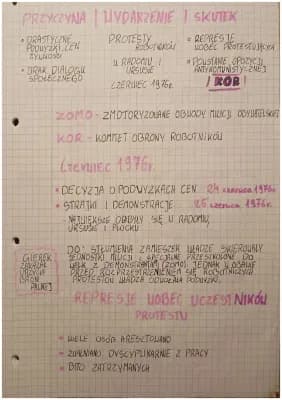 PRZYCZYNA | WYDARZENIE | SKUTEK
• DRASTYCZNE PROTESTY • REPRESJE
PODWYŻKI CEN ROBOTNIKÓW WOBEC PROTESTUJĄCYCH
ŻYWNOŚCI W RADOMIU I • POWSTANIE OPOZYCJI
• BRAK DIALOGU URSUSIE ANTYKOMUNISTYCZNEJ
SPOŁECZNEGO CZERWIEC 1976r. KOR
ZOMO - ZMOTORYZOWANE ODWODY MILICJI OBYWATELSKIEJ
KOR - KOMITET OBRONY ROBOTNIKÓW
CZERWIEC 1976r.
• DECYZJA O PODWYŻKACH CEN 24 czerwca 1976r.
• STRAJKI I DEMONSTRACJE 25 czerwca 1976r.
- NAJWIĘKSZE ODBYŁY SIĘ W RADOMIU,
URSUSIE I PŁOCKU
GIEREK
ZAKAZAŁ
UŻYCIA
BRONI
PALNEJ
DO STŁUMIENIA ZAMIESZEK WŁADZE SKIEROWAŁY
JEDNOSTKI MILICJI SPECJALNIE PRZESZKOLONE DO
WALK Z DEMONSTRANTAMI (ZOMO). JEDNAK W OBAWIE
PRZED ROZPRZESTRZENIENIEM SIĘ ROBOTNICZYCH
PROTESTÓW WŁADZA ODWOŁAŁA PODWYŻKI.
REPRESJE WOBEC UCZESTNIKÓW
PROTESTU
• WIELE OSÓB ARESZTOWANO
• ZWALNIANO DYSCYPLINARNIE Z PRACY
• BITO ZATRZYMANYCH